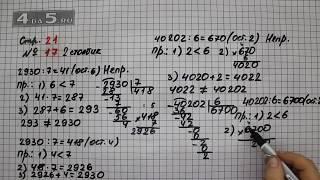 4 DA 5.RU
Стр. 21
№ 17 2 столбик
2930:7=41(ост.6) Непр.
Пр.: 1) 6<7
2) 41·7=287
3) 287+6=293
293≠2930
2930:7=418(ост.4)
1) 4<7
2) 418·7=2926
3) 2926+4=2930
2930 7
28 418
13
7
60
56
4
418
7
2926
40202:6=670(ост.2) Непр.
Пр.: 1) 2<6
2) 670
6
4020
3) 4020+2=4022
4022≠40202
40202 6
36 6700
42
42
0
2
40202:6=6700(ост.2)
Пр.: 1) 2<6
2) 6700